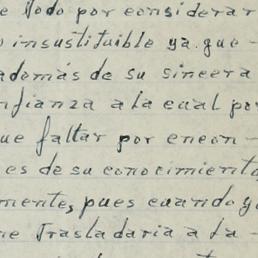 e Todo por considerar
o insustituible ya que -
además de su sincera
nfianza a la cual po
ue faltar por encon -
es de su conocimiento,
mente, pues cuando yo
me Trasladaria a la -